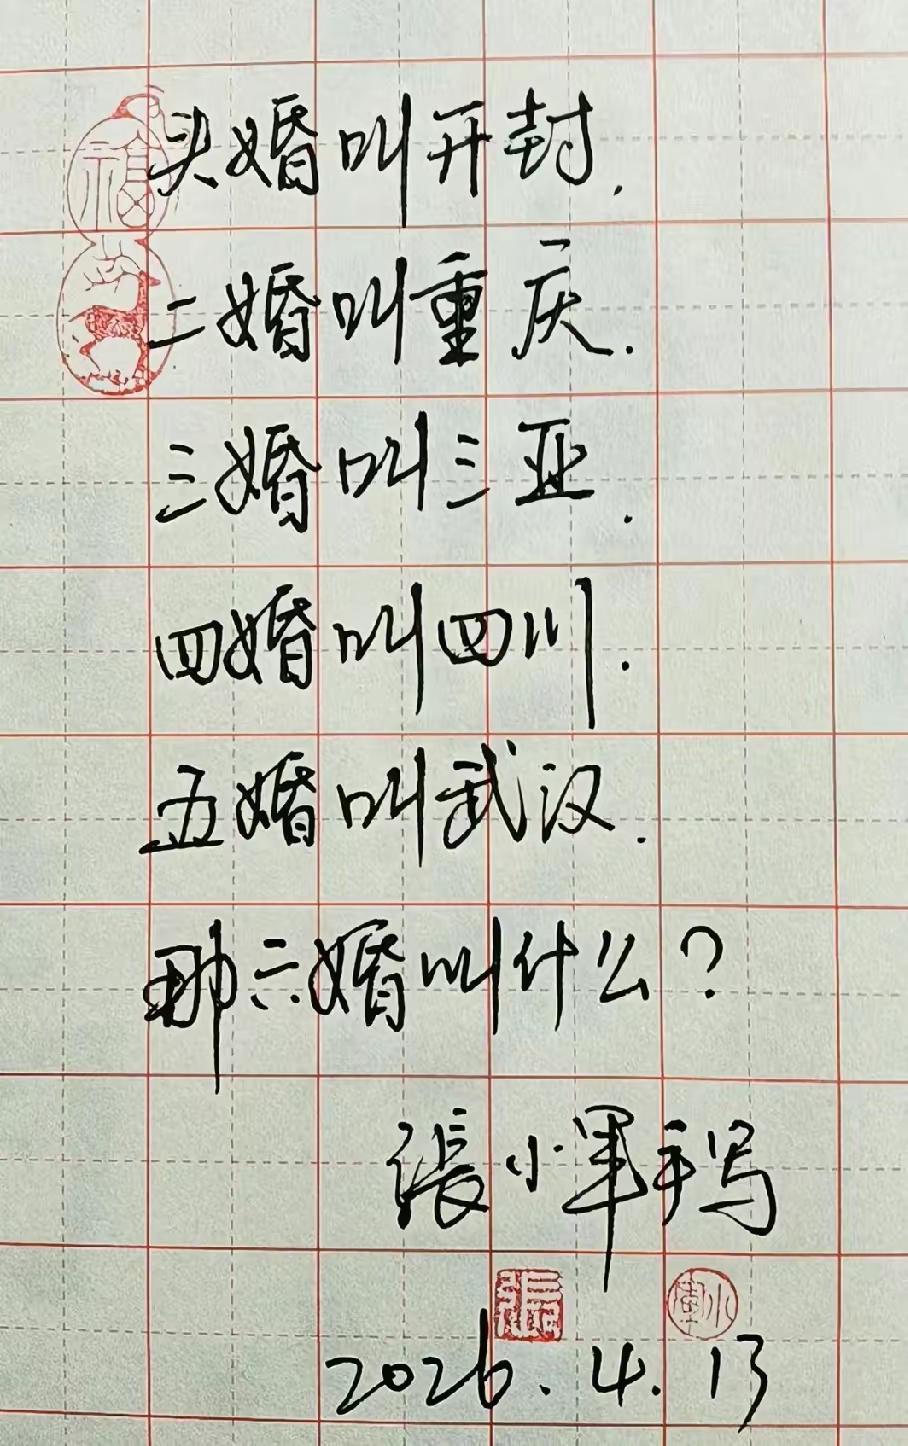 头婚叫开封.
二婚叫重庆.
三婚叫三亚.
四婚叫四川.
五婚叫武汉.
那六婚叫什么?
張小军手写
張
小軍
2026.4.13
福